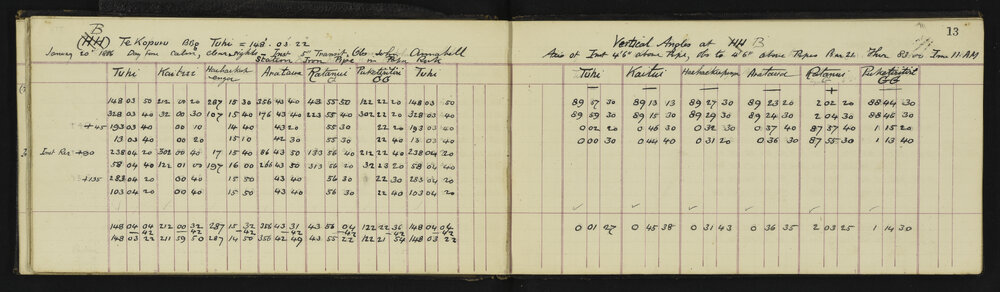 B
(HH) Te Kopuru Brg Tuhi = 148 . 03 . 22
January 20th 1886 Day fine calm, clear sights - Inst 5" Transit, Obs John Campbell
Station Iron Pipe in Papa Rock
Tuhi Kaitui Haehaekupenga Anatawa Ratanui G Puketutu GG Tuhi
148 03 50 212 00 20 287 15 30 356 43 40 43 55 50 122 22 20 148 03 50
328 03 40 32 00 30 107 15 40 176 43 40 223 55 40 302 22 20 328 03 40
+45 193 03 40 00 10 14 40 43 20 55 30 22 20 193 03 40
13 03 40 00 20 15 10 42 30 55 30 22 40 13 03 40
Inst Rev +90 238 04 20 302 00 40 17 15 40 86 43 50 133 56 40 212 22 40 238 04 20
58 04 40 122 01 00 197 16 00 266 43 50 313 56 20 32 23 20 58 04 40
+135 283 04 20 00 40 15 50 43 40 56 30 22 30 283 04 20
103 04 20 00 40 15 50 43 40 56 30 22 40 103 04 20
148 04 04 212 00 32 287 15 32 356 43 31 43 56 04 122 22 36 148 04 04
-42 -42 -42 -42 -42 -42
148 03 22 211 59 50 287 14 50 356 42 49 43 55 22 122 21 54 148 03 22
13
Vertical Angles at HH B
Axis of Inst 4'6" above Pipe, Obs to 4'6" above Pipes Ther 83 Time 11 AM
Tuhi Kaitui Haehaekupenga Anatawa Ratanui G Puketutu GG
89 57 30 89 13 13 89 27 30 89 23 20 2 02 20 88 44 30
89 59 30 89 15 30 89 29 30 89 24 30 2 04 30 88 46 30
0 02 20 0 46 30 0 32 30 0 37 40 87 57 40 1 15 20
0 00 30 0 44 40 0 31 20 0 36 30 87 55 30 1 13 40
0 01 27 0 45 38 0 31 43 0 36 35 2 03 25 1 14 30